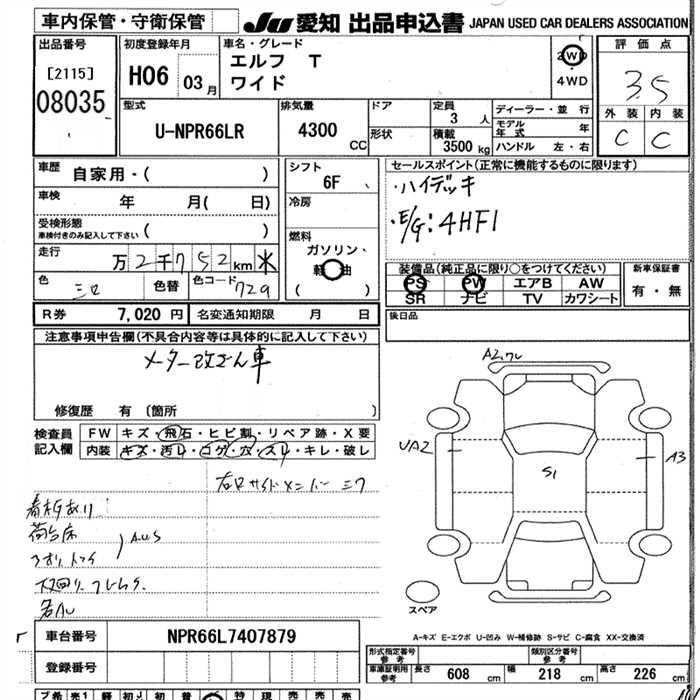 車内保管・守衛保管
JU 愛知 出品申込書 JAPAN USED CAR DEALERS ASSOCIATION
出品番号
[2115]
08035
初度登録年月
H06 03月
車名・グレード
エルフ T
ワイド
2WD
4WD
評価点
3.5
外装 内装
C C
型式
U-NPR66LR
排気量
4300 CC
ドア
形状
定員
3 人
積載
3500 kg
ディーラー・並行
モデル年式 年
ハンドル 左・右
車歴
自家用・( )
車検
年 月( 日)
受検形態
車検付きのみ記入して下さい ( )
走行
万2千752km ※
色
色替
色コード 729
シフト
6F
冷房
燃料
ガソリン・
軽油
( )
セールスポイント(正常に機能するものに限ります)
・ハイデッキ
・E/G:4HF1
装備品(純正品に限り○をつけてください)
PS PW エアB AW
SR ナビ TV カワシート
新車保証書
有・無
R券 7,020円 名変通知期限 月 日
後日品
注意事項申告欄(不具合内容等は具体的に記入して下さい)
メーター改ざん車
修復歴 有 〔箇所 〕
検査員記入欄
FW キズ・飛石・ヒビ割・リペア跡・X要
内装 キズ・汚レ・コゲ・穴・スレ・キレ・破レ
看板あり
荷台床
A2
UA2
S1
A3
スペア
A-キズ E-エクボ U-凹み W-補修跡 S-サビ C-腐食 XX-交換済
車台番号 NPR66L7407879
登録番号
型式指定番号 参考
類別区分番号 参考
車庫証明用 参考 長さ 608 cm 幅 218 cm 高さ 226 cm